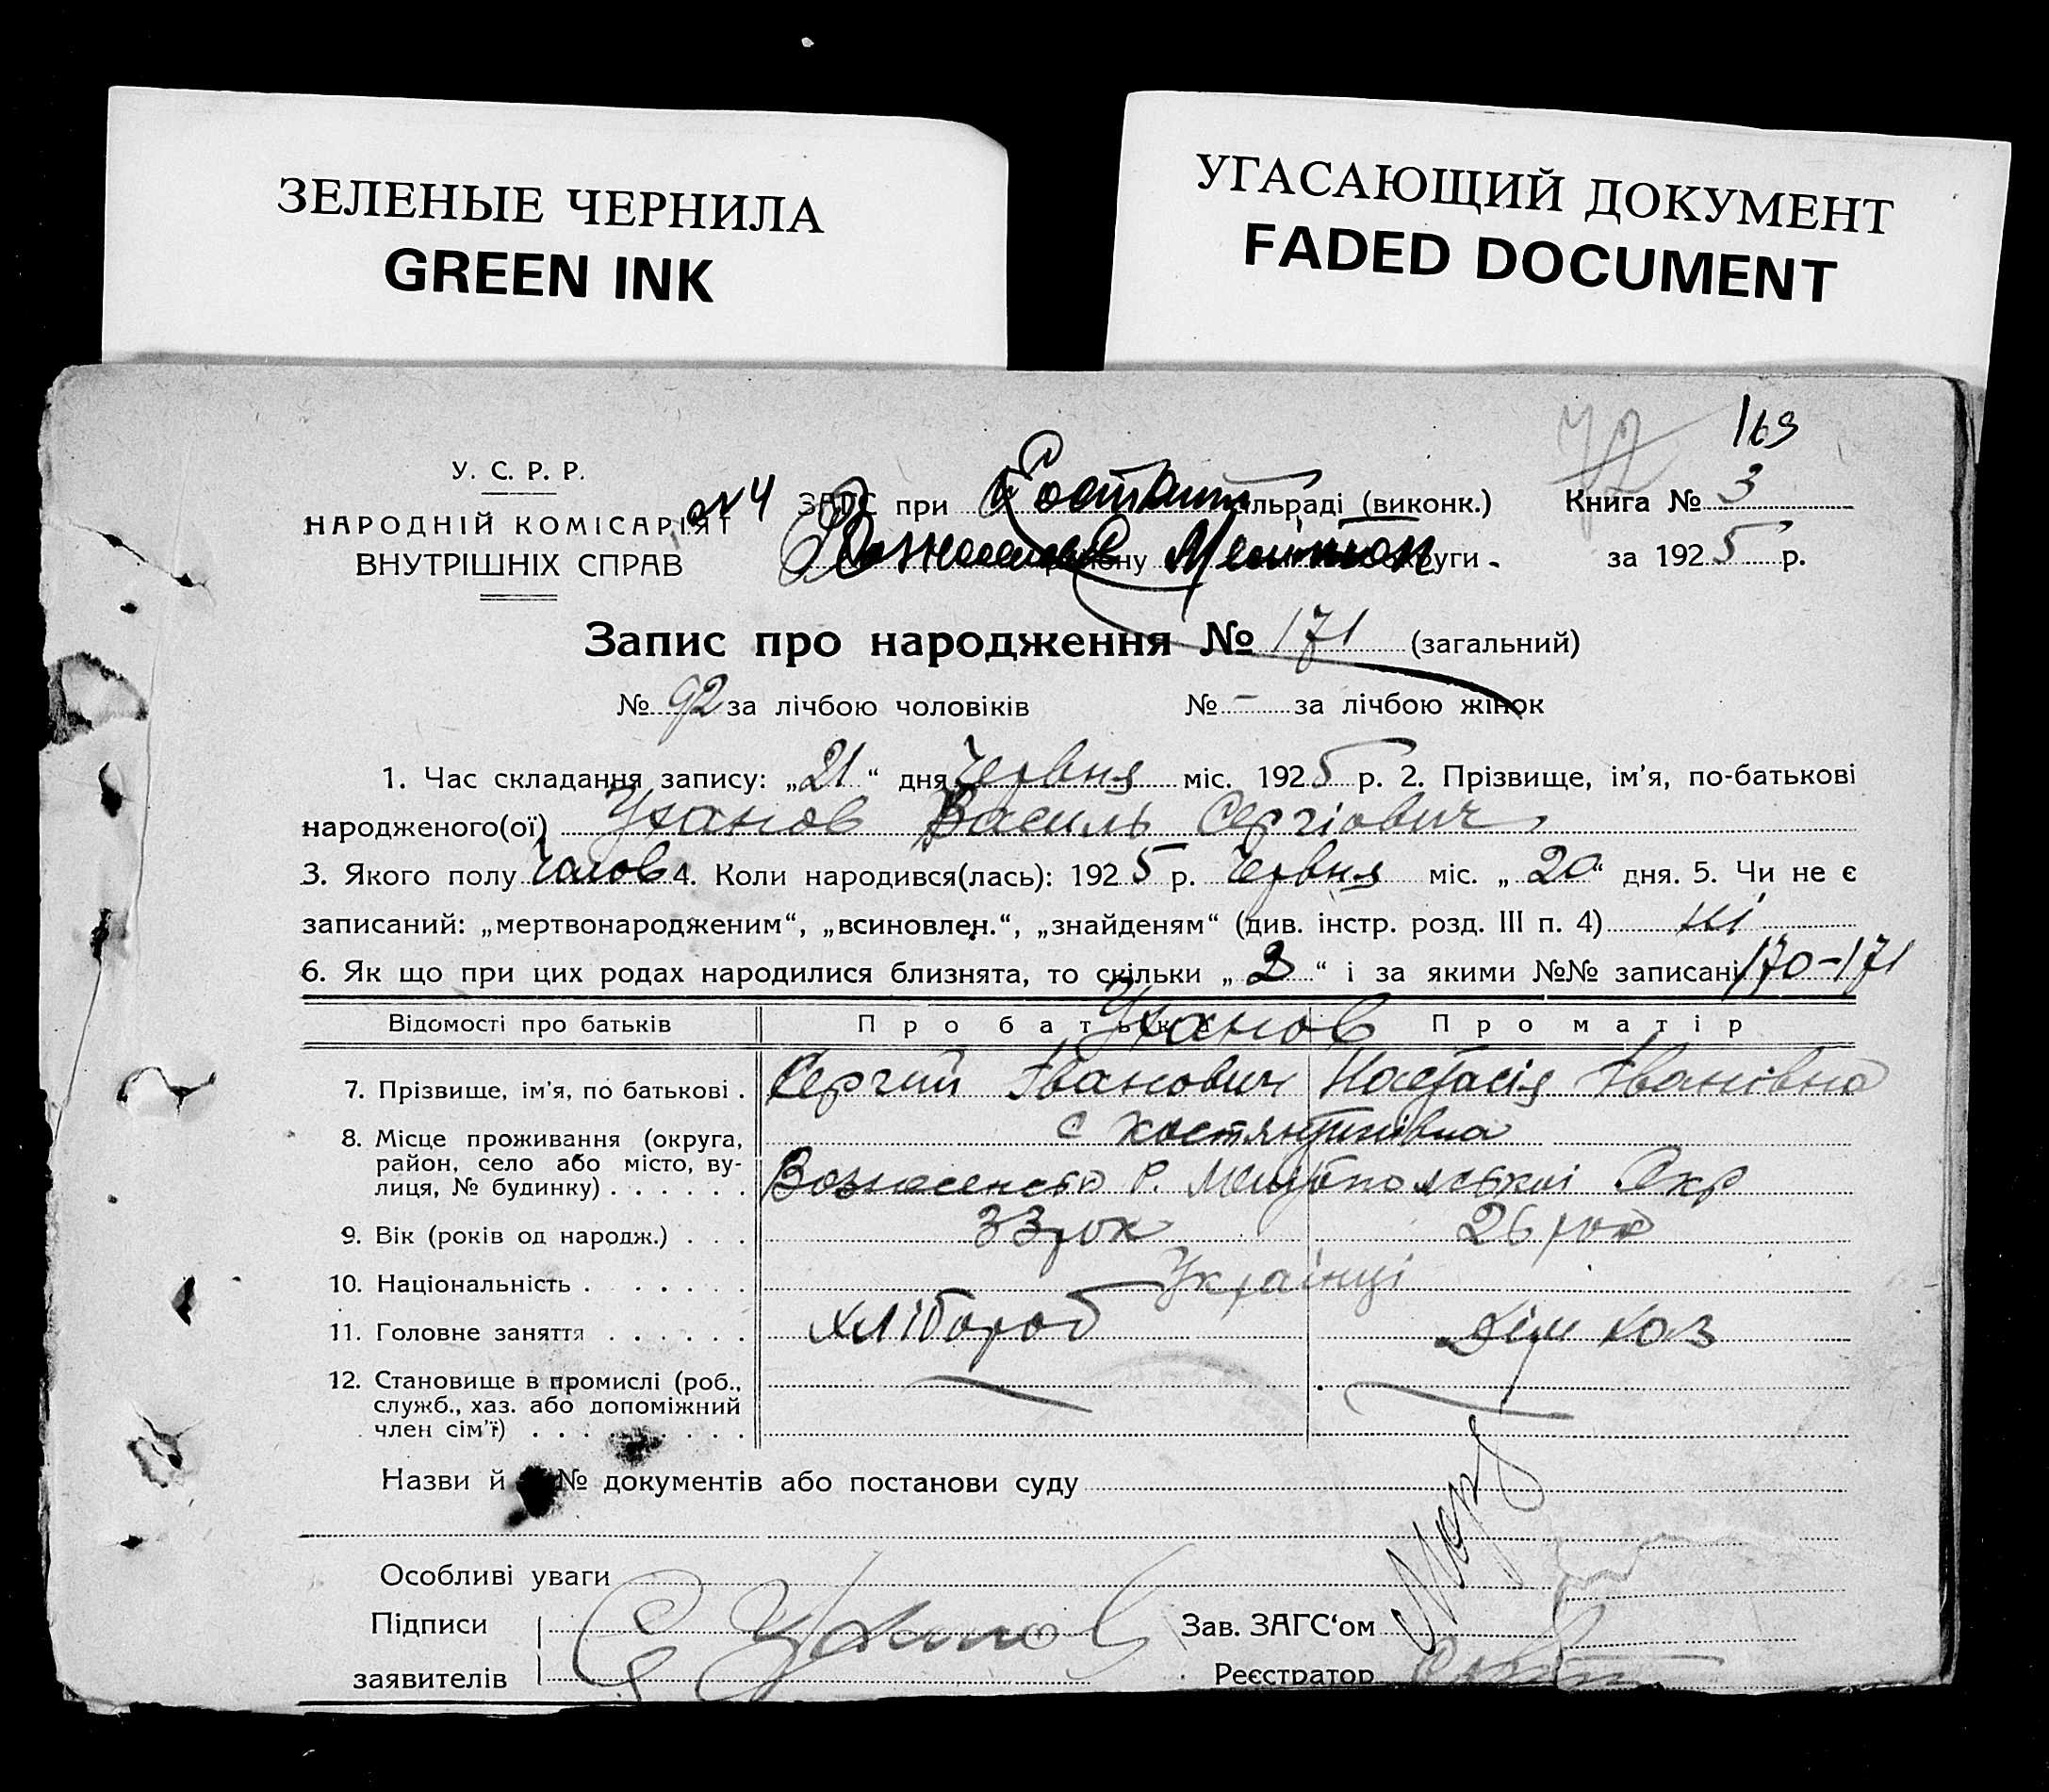 ЗЕЛЕНЫЕ ЧЕРНИЛА
GREEN INK
УГАСАЮЩИЙ ДОКУМЕНТ
FADED DOCUMENT
72 169
У. С. Р. Р.
НАРОДНІЙ КОМІСАРІЯТ
ВНУТРІШНІХ СПРАВ
№4 ЗАГС при сільраді (виконк.)
району округи.
Книга № 3
за 1925 р.
Запис про народження № 171 (загальний)
№ 92 за лічбою чоловіків № - за лічбою жінок
1. Час складання запису: „21“ дня Червня міс. 1925 р. 2. Прізвище, ім'я, по-батькові
народженого(ої) Уханов Василь Сергіович
3. Якого полу Чолов 4. Коли народився(лась): 1925 р. Червня міс. „20“ дня. 5. Чи не є
записаний: „мертвонародженим“, „всиновлен.“, „знайденям“ (див. інстр. розд. III п. 4) ні
6. Як що при цих родах народилися близнята, то скільки „2“ і за якими №№ записані 170-171
Відомості про батьків Про батька Про матір
Уханов
7. Прізвище, ім'я, по батькові . Сергий Іванович Настасія Іванівна
8. Місце проживання (округа, район, село або місто, вулиця, № будинку) . . . . . . с Костянтинівна
Вознесенсто Р. Мелітопольської Окр
9. Вік (років од народж.) . . . 33 рок 26 рок
10. Національність . . . . . . Українці
11. Головне заняття . . . . . . хлібороб дім хаз
12. Становище в промислі (роб., служб., хаз. або допоміжний член сім'ї) . . . . . . . .
Назви й № документів або постанови суду
Особливі уваги
Підписи
заявителів
С Уханов
Зав. ЗАГС‘ом
Реєстратор